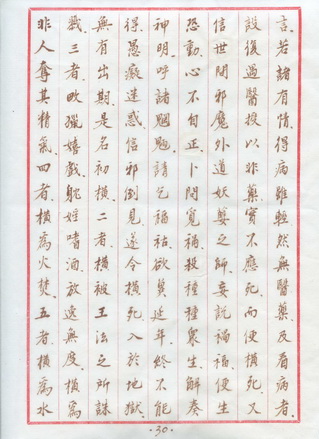 言若諸有情得病雖輕然無醫藥及看病者
設復遇醫授以非藥實不應死而便橫死又
信世間邪魔外道妖孽之師妄說禍福便生
恐動心不自正卜問覓禍殺種種眾生解奏
神明呼諸魍魎請乞福祐欲冀延年終不能
得愚癡迷惑信邪倒見遂令橫死入於地獄
無有出期是名初橫二者橫被王法之所誅
戮三者畋獵嬉戲躭婬嗜酒放逸無度橫為
非人奪其精氣四者橫為火焚五者橫為水
·30·